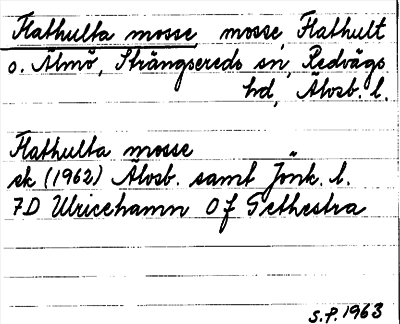 Flathulta mosse, mosse, Flathult
o. Älmö, Strängsereds sn, Redvägs
hd, Älvsb. l.
Flathulta mosse
ek (1962) Älvsb. samt Jönk. l.
7D Ulricehamn 0f Gethestra
S.P. 1963